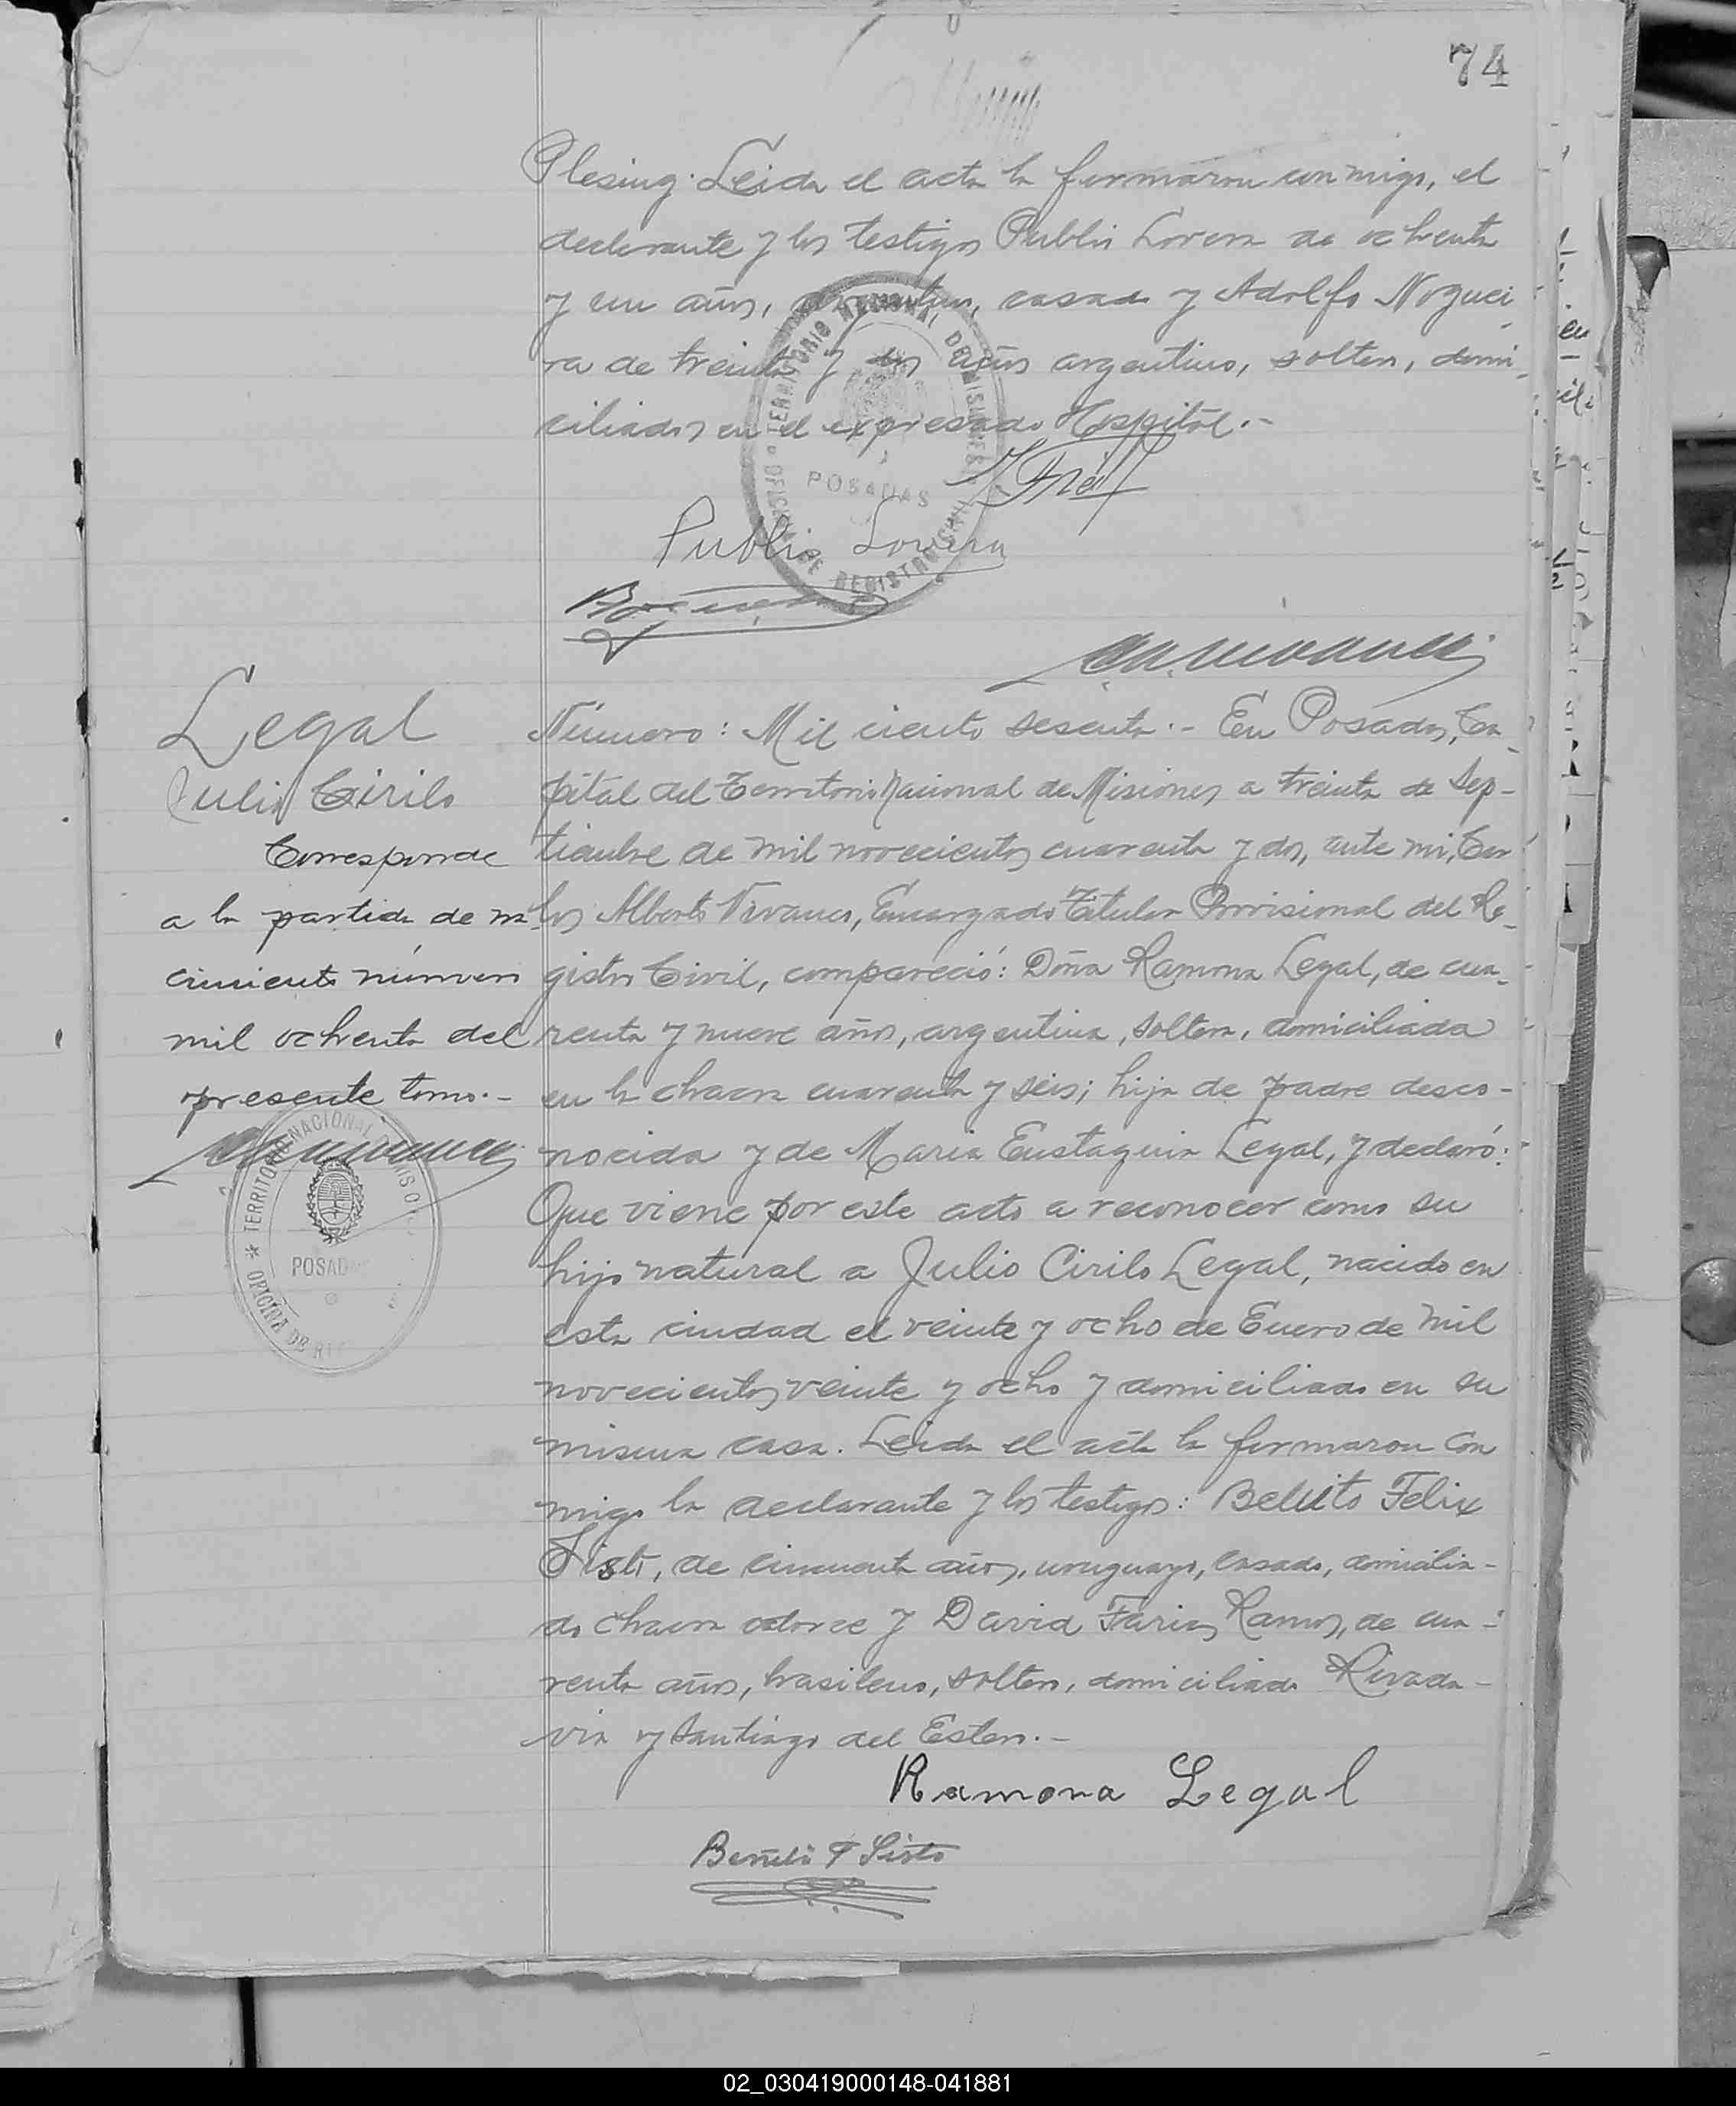 74
Plesing. Leida el acta la firmaron conmigo, el
declarante y los testigos Publio Lovera de ochenta
y un años, argentino, casado y Adolfo Noguei
ra de treinta y dos años argentino, soltero, domi
ciliados en el expresado Hospital.-
TERRITORIO NACIONAL DE MISIONES
POSADAS
OFICINA DE REGISTRO CIVIL
Publio Lovera
Legal
Julio Cirilo
Corresponde
a la partida de na-
cimiento número
mil ochenta del
presente tomo.-
TERRITORIO NACIONAL
POSADAS
OFICINA DE
Número: Mil ciento sesenta.- En Posadas, Ca-
pital del Territorio Nacional de Misiones a treinta de Sep-
tiembre de mil novecientos cuarenta y dos, ante mi, Car
los Alberto Vivanco, Encargado Titular Provisional del Re-
gistro Civil, compareció: Doña Ramona Legal, de cua-
renta y nueve años, argentina, soltera, domiciliada
en la chacra cuarenta y seis; hija de padre desco-
nocida y de Maria Eustaquia Legal, y declaró:
Que viene por este acto a reconocer como su
hijo natural a Julio Cirilo Legal, nacido en
esta ciudad el veinte y ocho de Enero de mil
novecientos veinte y ocho y domiciliado en su
misma casa. Leida el acta la firmaron con
migo la declarante y los testigos: Benito Felix
Sisto, de cincuenta años, uruguayo, casado, domicilia-
do chacra catorce y David Farias Ramos, de cua-
renta años, brasilero, soltero, domiciliado Rivada-
via y Santiago del Estero.-
Ramona Legal
Benito F Sisto
02_030419000148-041881